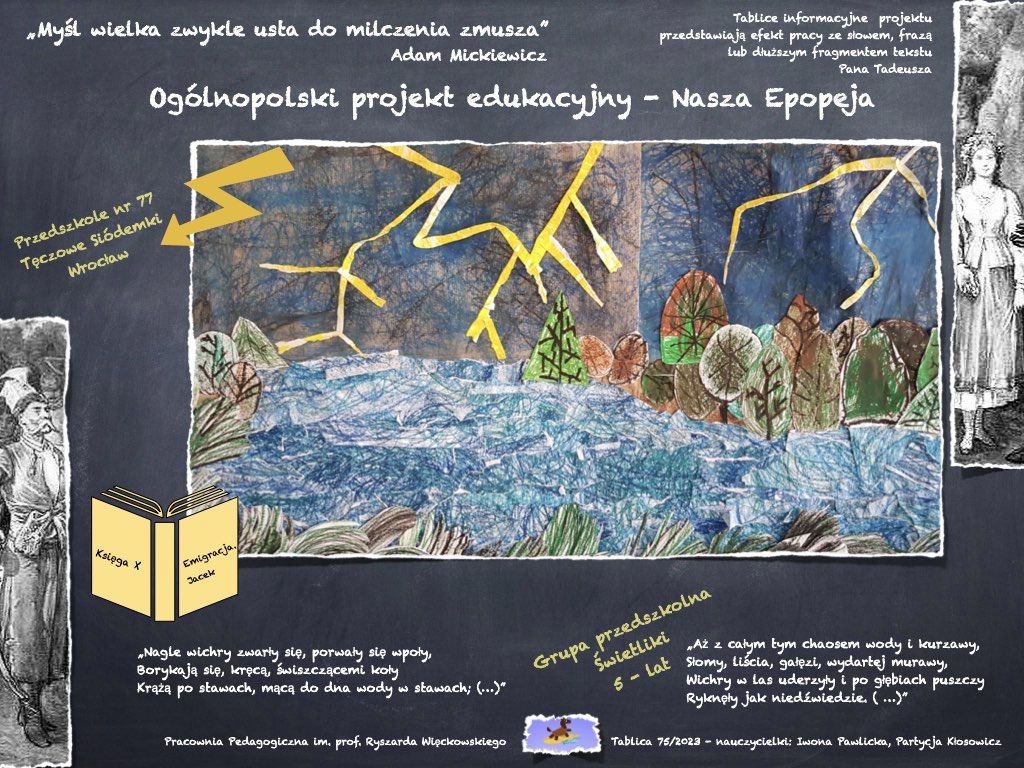 „Myśl wielka zwykle usta do milczenia zmusza”
Adam Mickiewicz
Tablice informacyjne projektu
przedstawiają efekt pracy ze słowem, frazą
lub dłuższym fragmentem tekstu
Pana Tadeusza
Ogólnopolski projekt edukacyjny - Nasza Epopeja
Przedszkole nr 77
Tęczowe Siódemki
Wrocław
Księga X
Emigracja.
Jacek
„Nagle wichry zwarły się, porwały się wpoły,
Borykają się, kręcą, świszczącemi koły
Krążą po stawach, mącą do dna wody w stawach; (...)”
Grupa przedszkolna
Świetliki
5 - lat
„Aż z całym tym chaosem wody i kurzawy,
Słomy, liścia, gałęzi, wydartej murawy,
Wichry w las uderzyły i po głębiach puszczy
Ryknęły jak niedźwiedzie. ( ...)”
Pracownia Pedagogiczna im. prof. Ryszarda Więckowskiego
Tablica 75/2023 - nauczycielki: Iwona Pawlicka, Partycja Kłosowicz